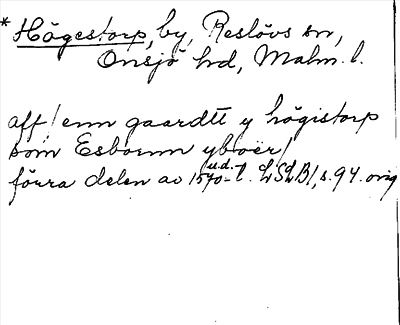 *Högestorp, by, Reslövs sn,
Onsjö hd, Malm. l.
aff / enn gaardtt y högistorp
som Esbernn yboer /
förra delen av 1570-t. LSLB, s. 94. orig
u.d.